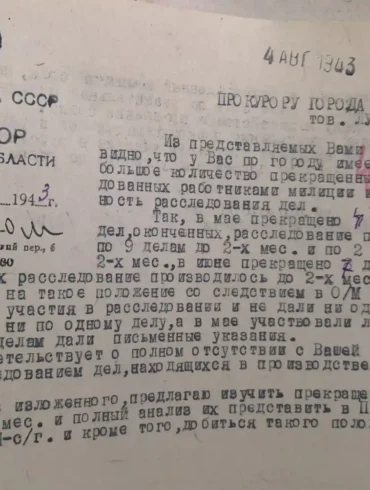 4 АВГ 1943
СССР
ПРОКУРОРУ ГОРОДА
тов.
ОР
БЛАСТИ
Из представляемых Вами
видно, что у Вас по городу имее
большое количество прекращенны
дованных работниками милиции и
ность расследования дел.
1943г.
Так, в мае прекращено
дел, оконченных, расследование п
пер., 6
по 9 делам до 2-х мес. и по 2
2-х мес., в июне прекращено 7 д
х расследование производилось до 2-х мес.
на такое положение со следствием в О/М
участия в расследовании и не дали ни од
ни по одному делу, а в мае участвовали л
делам дали письменные указания.
етельствует о полном отсутствии с Вашей
едованием дел, находящихся в производстве
изложенного, предлагаю изучить прекраще
мес. и полный анализ их представить в П
-с/г. и кроме того, добиться такого поло